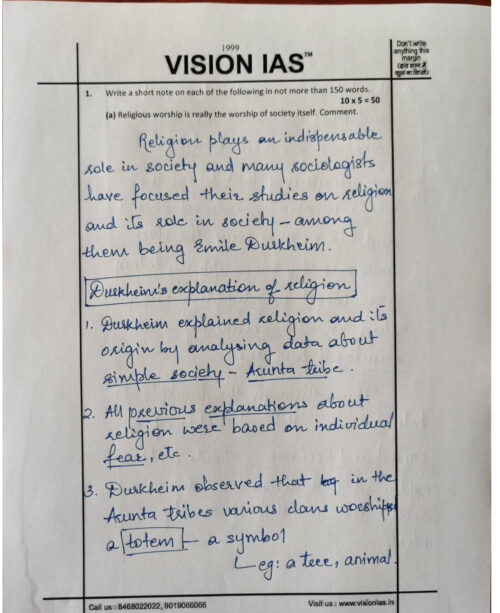 1999
VISION IAS™
Don't write
anything this
margin
(इस भाग में
कुछ ना लिखें)
1. Write a short note on each of the following in not more than 150 words.
10 x 5 = 50
(a) Religious worship is really the worship of society itself. Comment.
Religion plays an indispensable
role in society and many sociologists
have focused their studies on religion
and its role in society - among
them being Emile Durkheim.
Durkheim's explanation of religion
1. Durkheim explained religion and its
origin by analysing data about
simple society - Arunta tribe.
2. All previous explanations about
religion were based on individual
fear, etc.
3. Durkheim observed that in the
Arunta tribes various clans worship
a totem - a symbol
eg: a tree, animal.
Call us : 8468022022, 9019066066
Visit us : www.visionias.in